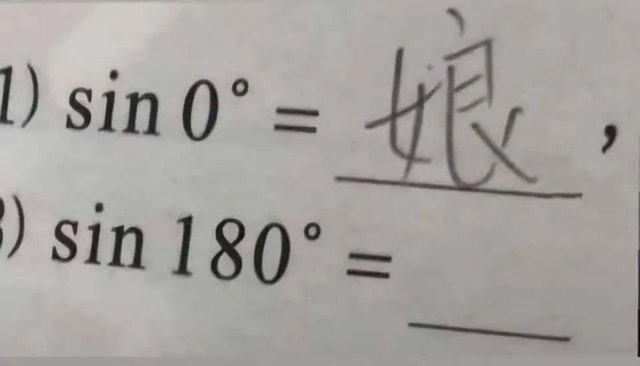 1) sin 0° = 娘,
) sin 180° =